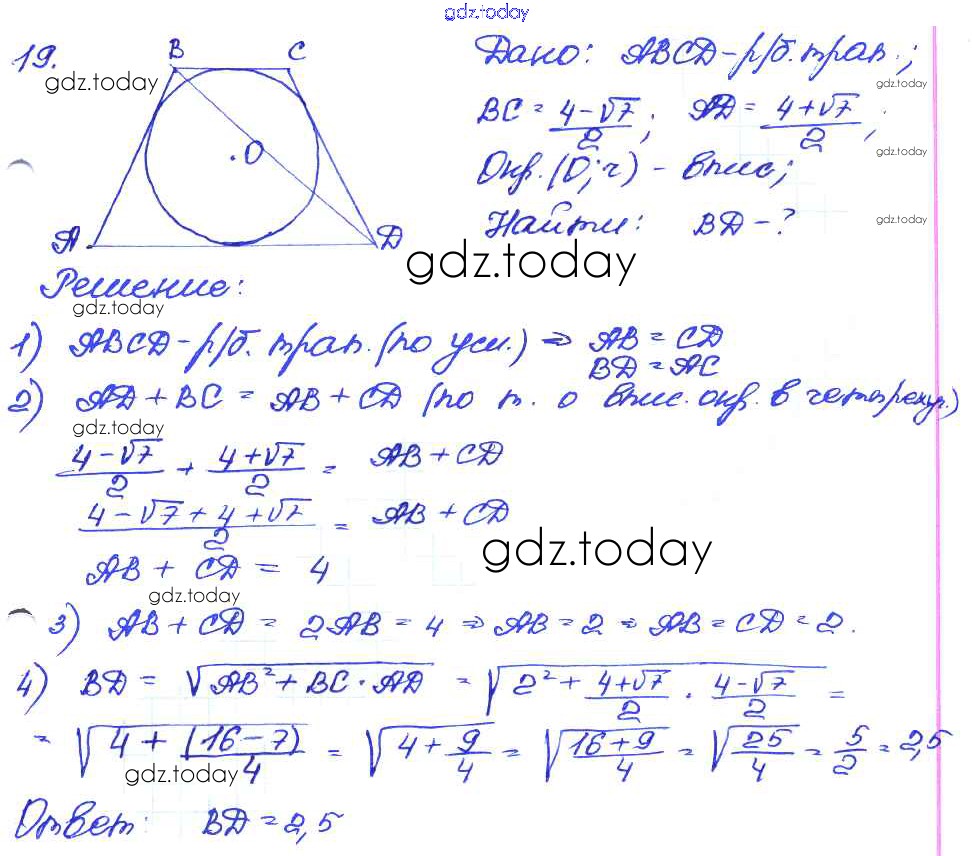 gdz.today
19.
B C
gdz.today
O
A D
Дано: ABCD - р/б. трап.;
gdz.today
BC = (4-√7)/2; AD = (4+√7)/2;
gdz.today
Окр. (O; r) - впис;
Найти: BD - ?
gdz.today
gdz.today
Решение:
gdz.today
1) ABCD - р/б. трап. (по усл.) ⇒ AB = CD
BD = AC
2) AD + BC = AB + CD (по т. о впис. окр. в четырехуг.)
gdz.today
(4-√7)/2 + (4+√7)/2 = AB + CD
(4-√7+4+√7)/2 = AB + CD
gdz.today
AB + CD = 4
gdz.today
3) AB + CD = 2AB = 4 ⇒ AB = 2 ⇒ AB = CD = 2.
4) BD = √(AB² + BC · AD) = √(2² + (4+√7)/2 · (4-√7)/2) =
= √(4 + (16-7)/4) = √(4 + 9/4) = √((16+9)/4) = √(25/4) = 5/2 = 2,5
gdz.today
Ответ: BD = 2,5